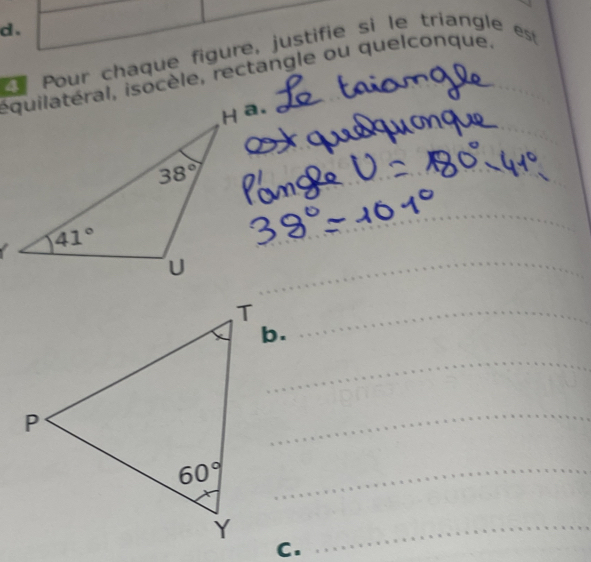 d.
4 Pour chaque figure, justifie si le triangle est
équilatéral, isocèle, rectangle ou quelconque.
H
a. Le triangle
est quelquonque
l'angle U = 180°-41°-
38° = 101°
38°
Y
41°
U
T
b.
P
60°
Y
c.